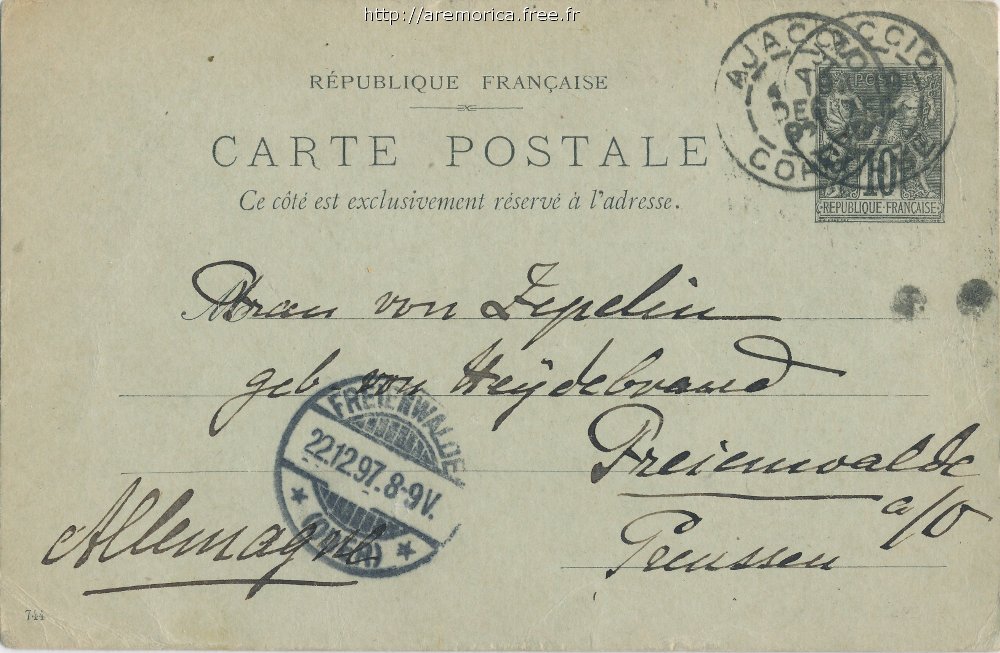 http://aremorica.free.fr
AJACCIO
CORSE
RÉPUBLIQUE FRANÇAISE
CARTE POSTALE
Ce côté est exclusivement réservé à l'adresse.
POSTES
10
RÉPUBLIQUE·FRANÇAISE
von Zepelin
geb von Heydebrand
FREIENWALDE
22.12.97. 8-9V.
(ODER)
Freienwalde
a/O
Allemagne
Preussen
744